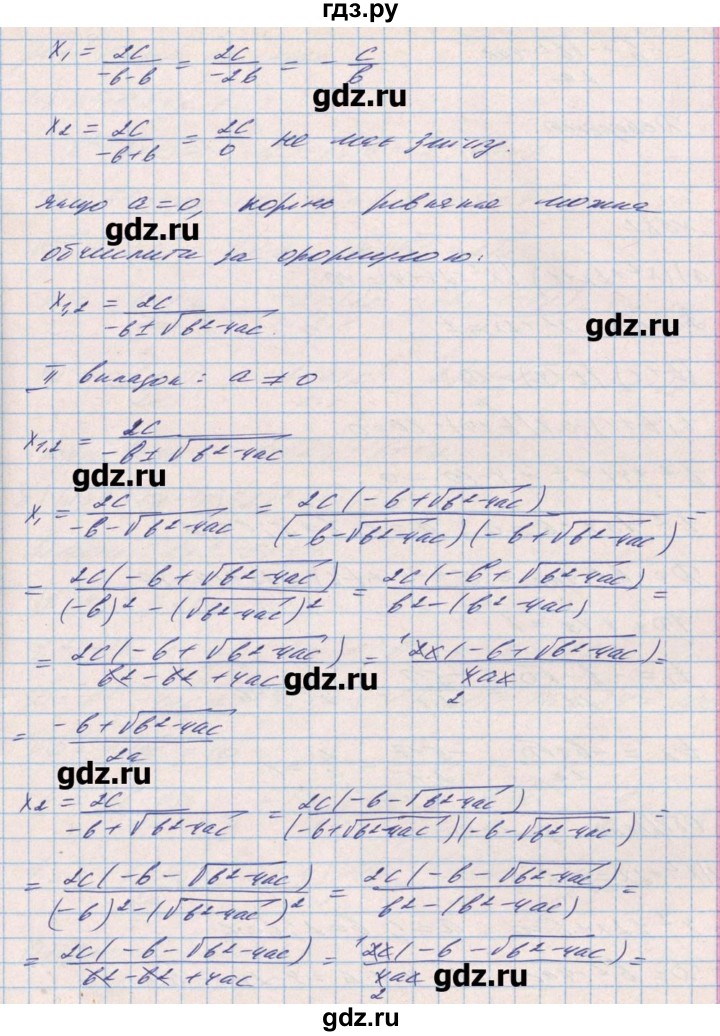 гдз.ру
x₁ = 2c/(-b-b) = 2c/(-2b) = - c/b
gdz.ru
x₂ = 2c/(-b+b) = 2c/0 не має змісу.
якщо a=0, корень рівняння можна
gdz.ru
обчислити за формулою:
x₁,₂ = 2c/(-b±√(b²-4ac)).
gdz.ru
II випадок: a≠0
x₁,₂ = 2c/(-b±√(b²-4ac))
gdz.ru
x₁ = 2c/(-b-√(b²-4ac)) = 2c(-b+√(b²-4ac))/((-b-√(b²-4ac))(-b+√(b²-4ac))) =
= 2c(-b+√(b²-4ac))/((-b)²-(√(b²-4ac))²) = 2c(-b+√(b²-4ac))/(b²-(b²-4ac)) =
= 2c(-b+√(b²-4ac))/(b²-b²+4ac) = ¹2c(-b+√(b²-4ac))/(₂4ac) =
gdz.ru
= (-b+√(b²-4ac))/2a
gdz.ru
x₂ = 2c/(-b+√(b²-4ac)) = 2c(-b-√(b²-4ac))/((-b+√(b²-4ac))(-b-√(b²-4ac))) =
= 2c(-b-√(b²-4ac))/((-b)²-(√(b²-4ac))²) = 2c(-b-√(b²-4ac))/(b²-(b²-4ac)) =
= 2c(-b-√(b²-4ac))/(b²-b²+4ac) = ¹2c(-b-√(b²-4ac))/(₂4ac) =
gdz.ru
gdz.ru